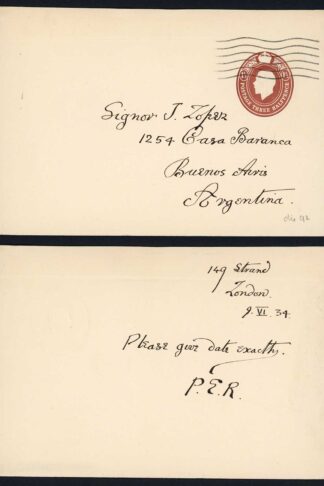 POSTAGE THREE HALFPENCE
Signor J. Lopez
1254 Casa Baranca
Buenos Airis
Argentina.
die 92
149 Strand
London.
9. VI. 34.
Please give date exactly.
P.E.R.